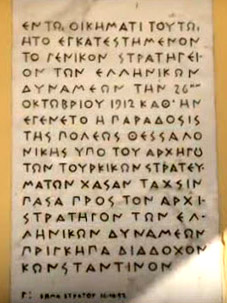 ΕΝ ΤΩ, ΟΙΚΗΜΑΤΙ ΤΟΥΤΩ,
ΗΤΟ ΕΓΚΑΤΕΣΤΗΜΕΝΟΝ
ΤΟ ΓΕΝΙΚΟΝ ΣΤΡΑΤΗΓΕΙ-
ΟΝ ΤΩΝ ΕΛΛΗΝΙΚΩΝ
ΔΥΝΑΜΕΩΝ ΤΗΝ 26ην
ΟΚΤΩΒΡΙΟΥ 1912 ΚΑΘ' ΗΝ
ΕΓΕΝΕΤΟ Η ΠΑΡΑΔΟΣΙΣ
ΤΗΣ ΠΟΛΕΩΣ ΘΕΣΣΑΛΟ
ΝΙΚΗΣ ΥΠΟ ΤΟΥ ΑΡΧΗΓΟΥ
ΤΩΝ ΤΟΥΡΚΙΚΩΝ ΣΤΡΑΤΕΥ-
ΜΑΤΩΝ ΧΑΣΑΝ ΤΑΧΣΙΝ
ΠΑΣΑ ΠΡΟΣ ΤΟΝ ΑΡΧΙ-
ΣΤΡΑΤΗΓΟΝ ΤΩΝ ΕΛ-
ΛΗΝΙΚΩΝ ΔΥΝΑΜΕΩΝ
ΠΡΙΓΚΗΠΑ ΔΙΑΔΟΧΟΝ
ΚΩΝΣΤΑΝΤΙΝΟΝ
Γ'. ΣΩΜΑ ΣΤΡΑΤΟΥ